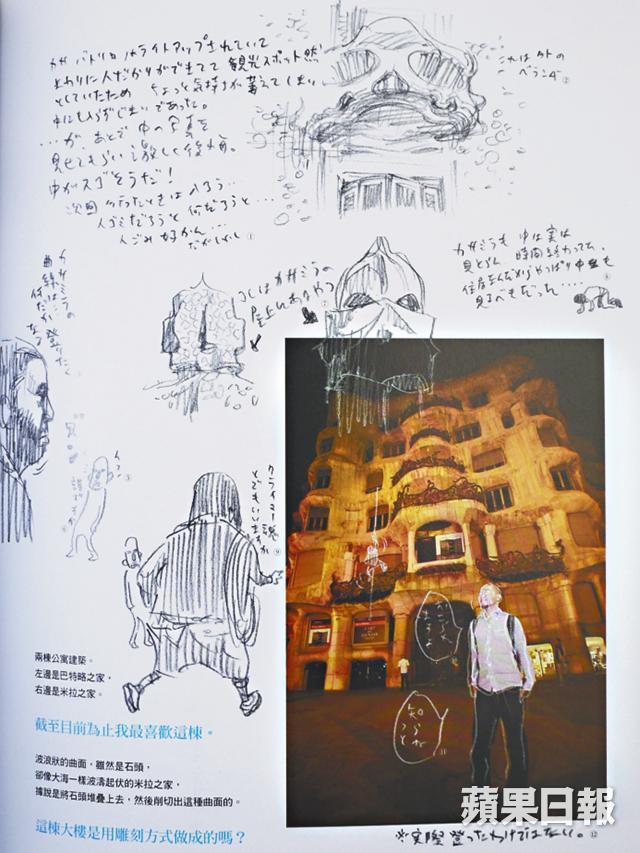 カサバトリョがライトアップされていて
まわりに人だかりができてて観光スポット然
としていたため ちょっと気持ちが萎えてしまい
中にも入らずじまいであった。
…が、あとで中の写真を
見せてもらい激しく後悔。
中がスゴそうだ!
次回行ったときは入ろう…
人ゴミだろうと何だろうと…
人ごみ好かん…
だがしかし ①
これは外の
ベランダ ②
カサミラも 中は実は
見とらん 時間終わってて。
住居なんだからやっぱり中まも
見るべきだった…
これはカサミラの
屋上にあるやつ
カサミラの
曲線は
何だか
登りたく
なる
クライマー説が
とてもいいます
⑨
知らが
つと
11
兩棟公寓建築。
左邊是巴特略之家,
右邊是米拉之家。
截至目前為止我最喜歡這棟。
波浪狀的曲面,雖然是石頭,
卻像大海一樣波濤起伏的米拉之家,
據說是將石頭堆疊上去,然後削切出這種曲面的。
這棟大樓是用雕刻方式做成的嗎?
※実際登ったわけではない。⑫
蘋果日報